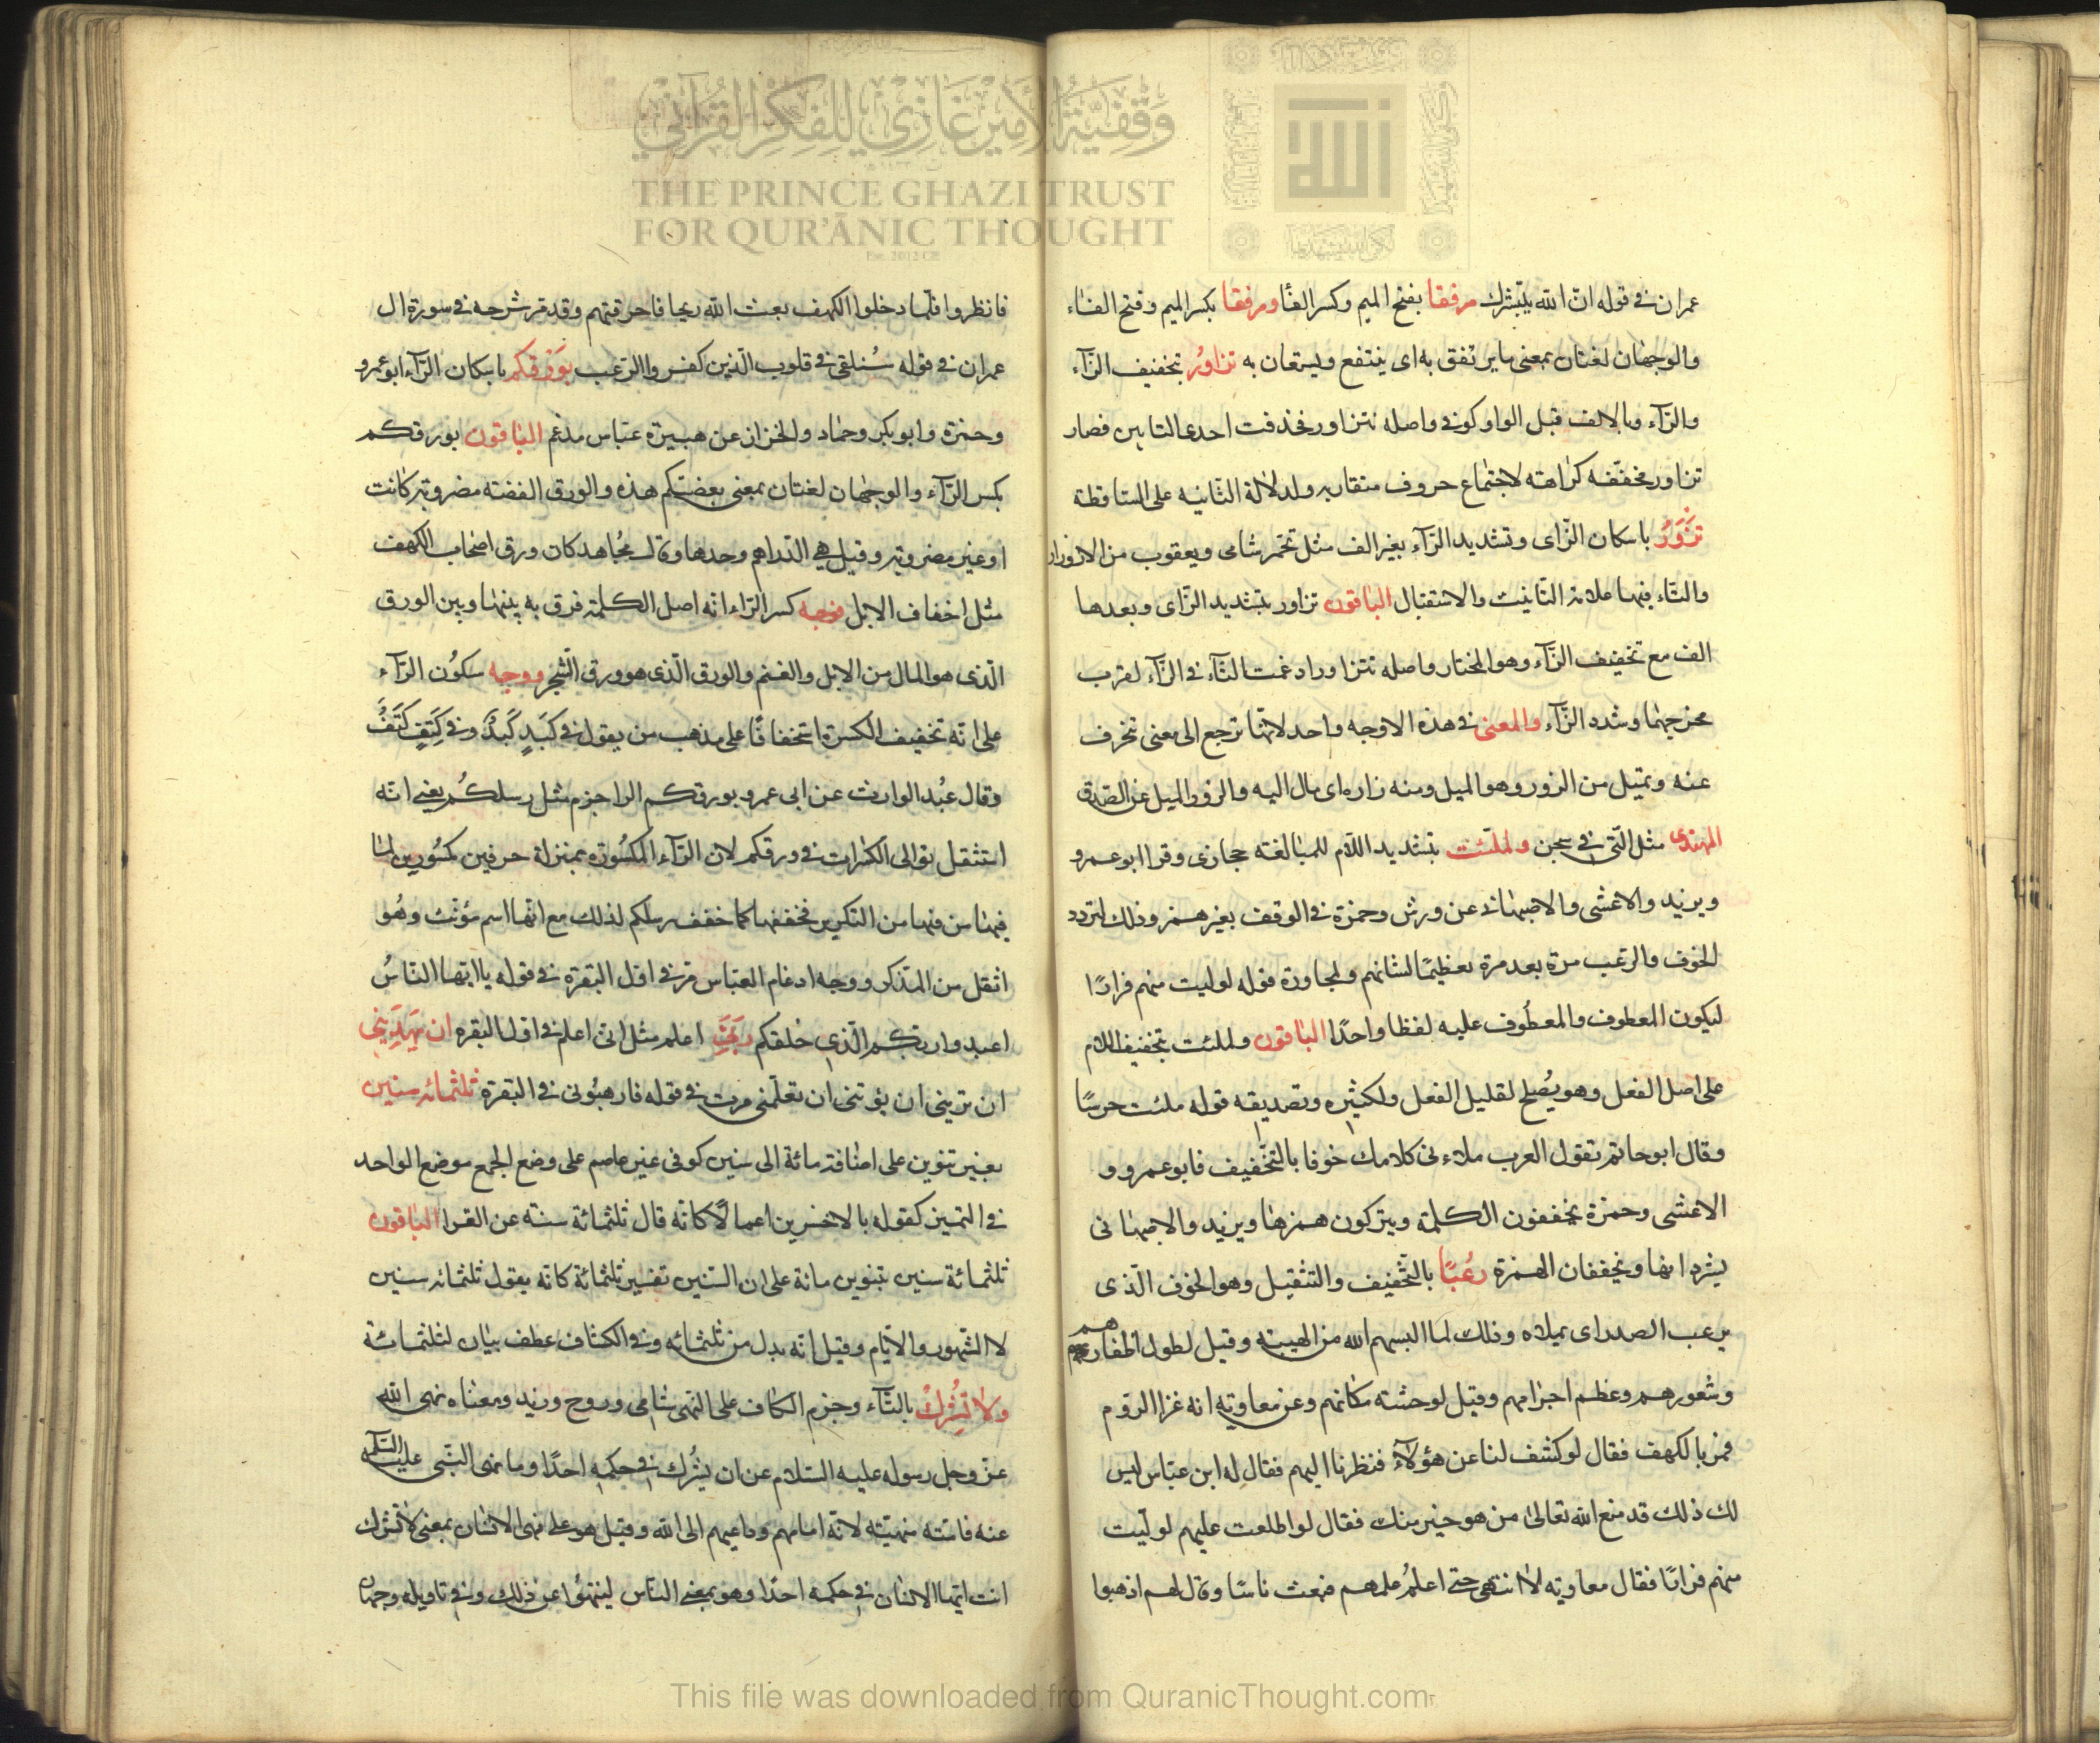 وقفية الأمير غازي للفكر القرآني
THE PRINCE GHAZI TRUST
FOR QUR'ĀNIC THOUGHT
Est. 2012 CE
الله
عمران في قوله ان الله يبشرك مرفقا بفتح الميم وكسر الفا ومرفقا بكسر الميم وفتح الفاء
والوجهان لغتان بمعنى ما يرتفق به اى ينتفع ويستعان به تزاور بتخفيف الزآء
والرآء وبالالف قبل الواو كوفي واصله تتزاور فحذفت احدى التايين فصار
تزاور مخففه كراهة لاجتماع حروف متقاربه ولدلالة الثانيه على الساقطة
تزور باسكان الزاى وتشديد الرآء بغير الف مثل تحمر شامى ويعقوب من الازورار
والتاء فيهما علامة التانيث والاستقبال الباقون تزاور بتشديد الزاى وبعدها
الف مع تخفيف الرآء وهو المختار واصله تتزاور ادغمت التآء في الزآء لقرب
مخرجهما وشدد الزآء والمعنى في هذه الاوجه واحد لانها ترجع الى معنى تنحرف
عنه وتميل من الزور وهو الميل ومنه زاره اى مال اليه والزور الميل عن الصدق
المهتدى مثل التى في سبحن ولملئت بتشديد اللام للمبالغة حجازى وقرا ابو عمرو
ويزيد والاعشى والاصبهانى عن ورش وحمزة في الوقف بغير همز وذلك لتردد
الخوف والرعب مرة بعد مرة تعظيمًا لشانهم ولمجاورة قوله لوليت منهم فرارًا
ليكون المعطوف والمعطوف عليه لفظا واحدًا الباقون ولملئت بتخفيف اللام
على اصل الفعل وهو يصلح لقليل الفعل ولكثيره وتصديقه قوله ملئت حرسًا
وقال ابو حاتم تقول العرب ملاء فى كلامك خوفا بالتخفيف فابو عمرو و
الاعشى وحمزة يخففون الكلمة ويتركون همزها ويزيد والاصبهانى
يشددانها ويخففان الهمزة رعبًا بالتخفيف والتثقيل وهو الخوف الذى
يرعب الصدر اى يملاه وذلك لما البسهم الله من الهيبة وقيل لطول اظفارهم
وشعورهم وعظم اجرامهم وقيل لوحشة مكانهم وعن معاوية انه غزا الروم
فمر بالكهف فقال لو كشف لنا عن هؤلآء فنظرنا اليهم فقال له ابن عباس ليس
لك ذلك قد منع الله تعالى من هو خير منك فقال لو اطلعت عليهم لوليت
منهم فرارًا فقال معاوية لا انتهى حتى اعلم علمهم فبعث ناسًا وقال لهم اذهبوا
فانظروا فلما دخلوا الكهف بعث الله ريحا فاحرقتهم وقد مر شرحه في سورة ال
عمران في قوله سنلقى في قلوب الذين كفروا الرعب بورقكم باسكان الرآء ابو عمرو
وحمزة وابو بكر وحماد والخزاز عن هبيرة عباس مدغم الباقون بورقكم
بكسر الرآء والوجهان لغتان بمعنى بفضتكم هذه والورق الفضة مضروبة كانت
او غير مضروبة وقيل هي الدراهم وحدها وقال مجاهد كان ورق اصحاب الكهف
مثل اخفاف الابل فوجه كسر الراء انه اصل الكلمة فرق به بينها وبين الورق
الذى هو المال من الابل والغنم والورق الذى هو ورق الشجر ووجه سكون الرآء
على انه تخفيف الكسرة استخفافًا على مذهب من يقول في كَبِدٍ كَبْدٌ وفي كَتِفٍ كَتْفٌ
وقال عبد الوارث عن ابى عمرو بورقكم الرا جزم مثل رسلكم يعنى انه
استثقل توالى الكسرات في ورقكم لان الرآء المكسورة بمنزلة حرفين مكسورين لما
فيها من التكرير فخففها كما خفف رسلكم لذلك مع انها اسم مؤنث وهو
اثقل من المذكر ووجه ادغام العباس مر في اول البقرة في قوله يا ايها الناسُ
اعبدوا ربكم الذى خلقكم ربى اعلم مثل انى اعلم في اول البقره ان يهدينى
ان ترينى ان يؤتينى ان تعلمنى مرت في قوله فارهبونى في البقرة ثلثمائة سنين
بغير تنوين على اضافة مائة الى سنين كوفى غير عاصم على وضع الجمع موضع الواحد
في التمييز كقوله بالاخسرين اعمالًا كانه قال ثلثمائة سنة عن الفرا الباقون
ثلثمائة سنين بتنوين مائة على ان السنين تفسير ثلثمائة كانه يقول ثلثمائة سنين
لا الشهور والايام وقيل انه بدل من ثلثمائه وفي الكشاف عطف بيان لثلثمائة
ولا تشرك بالتآء وجزم الكاف على النهى شامى وروح وزيد ومعناه نهى الله
عز وجل رسوله عليه السلام عن ان يشرك في حكمه احدًا وما نهى النبى عليه السلم
عنه فامته منهية لانه امامهم وداعيهم الى الله وقيل هو على نهى الانسان بمعنى لا تشرك
انت ايها الانسان في حكمه احدًا وهو بمعنى الناس لينتهوا عن ذلك وفي تاويله وجهان
This file was downloaded from QuranicThought.com